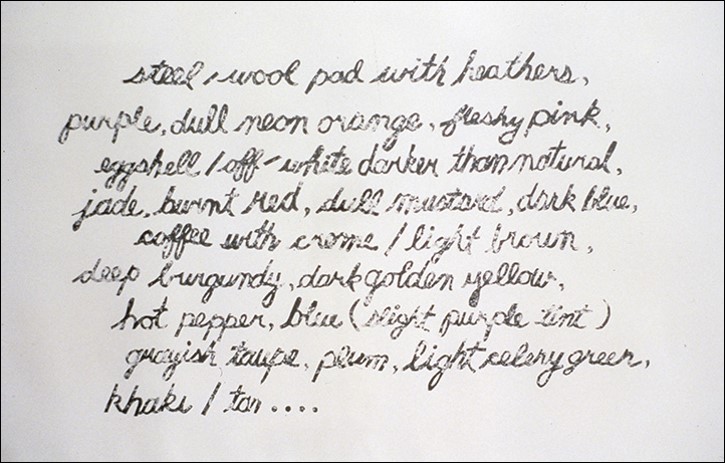 steel / wool pad with heathers,
purple, dull neon orange, fleshy pink,
eggshell / off-white darker than natural,
jade, burnt red, dull mustard, dark blue,
coffee with creme / light brown,
deep burgundy, dark golden yellow,
hot pepper, blue (slight purple tint)
grayish taupe, plum, light celery green,
khaki / tan ....